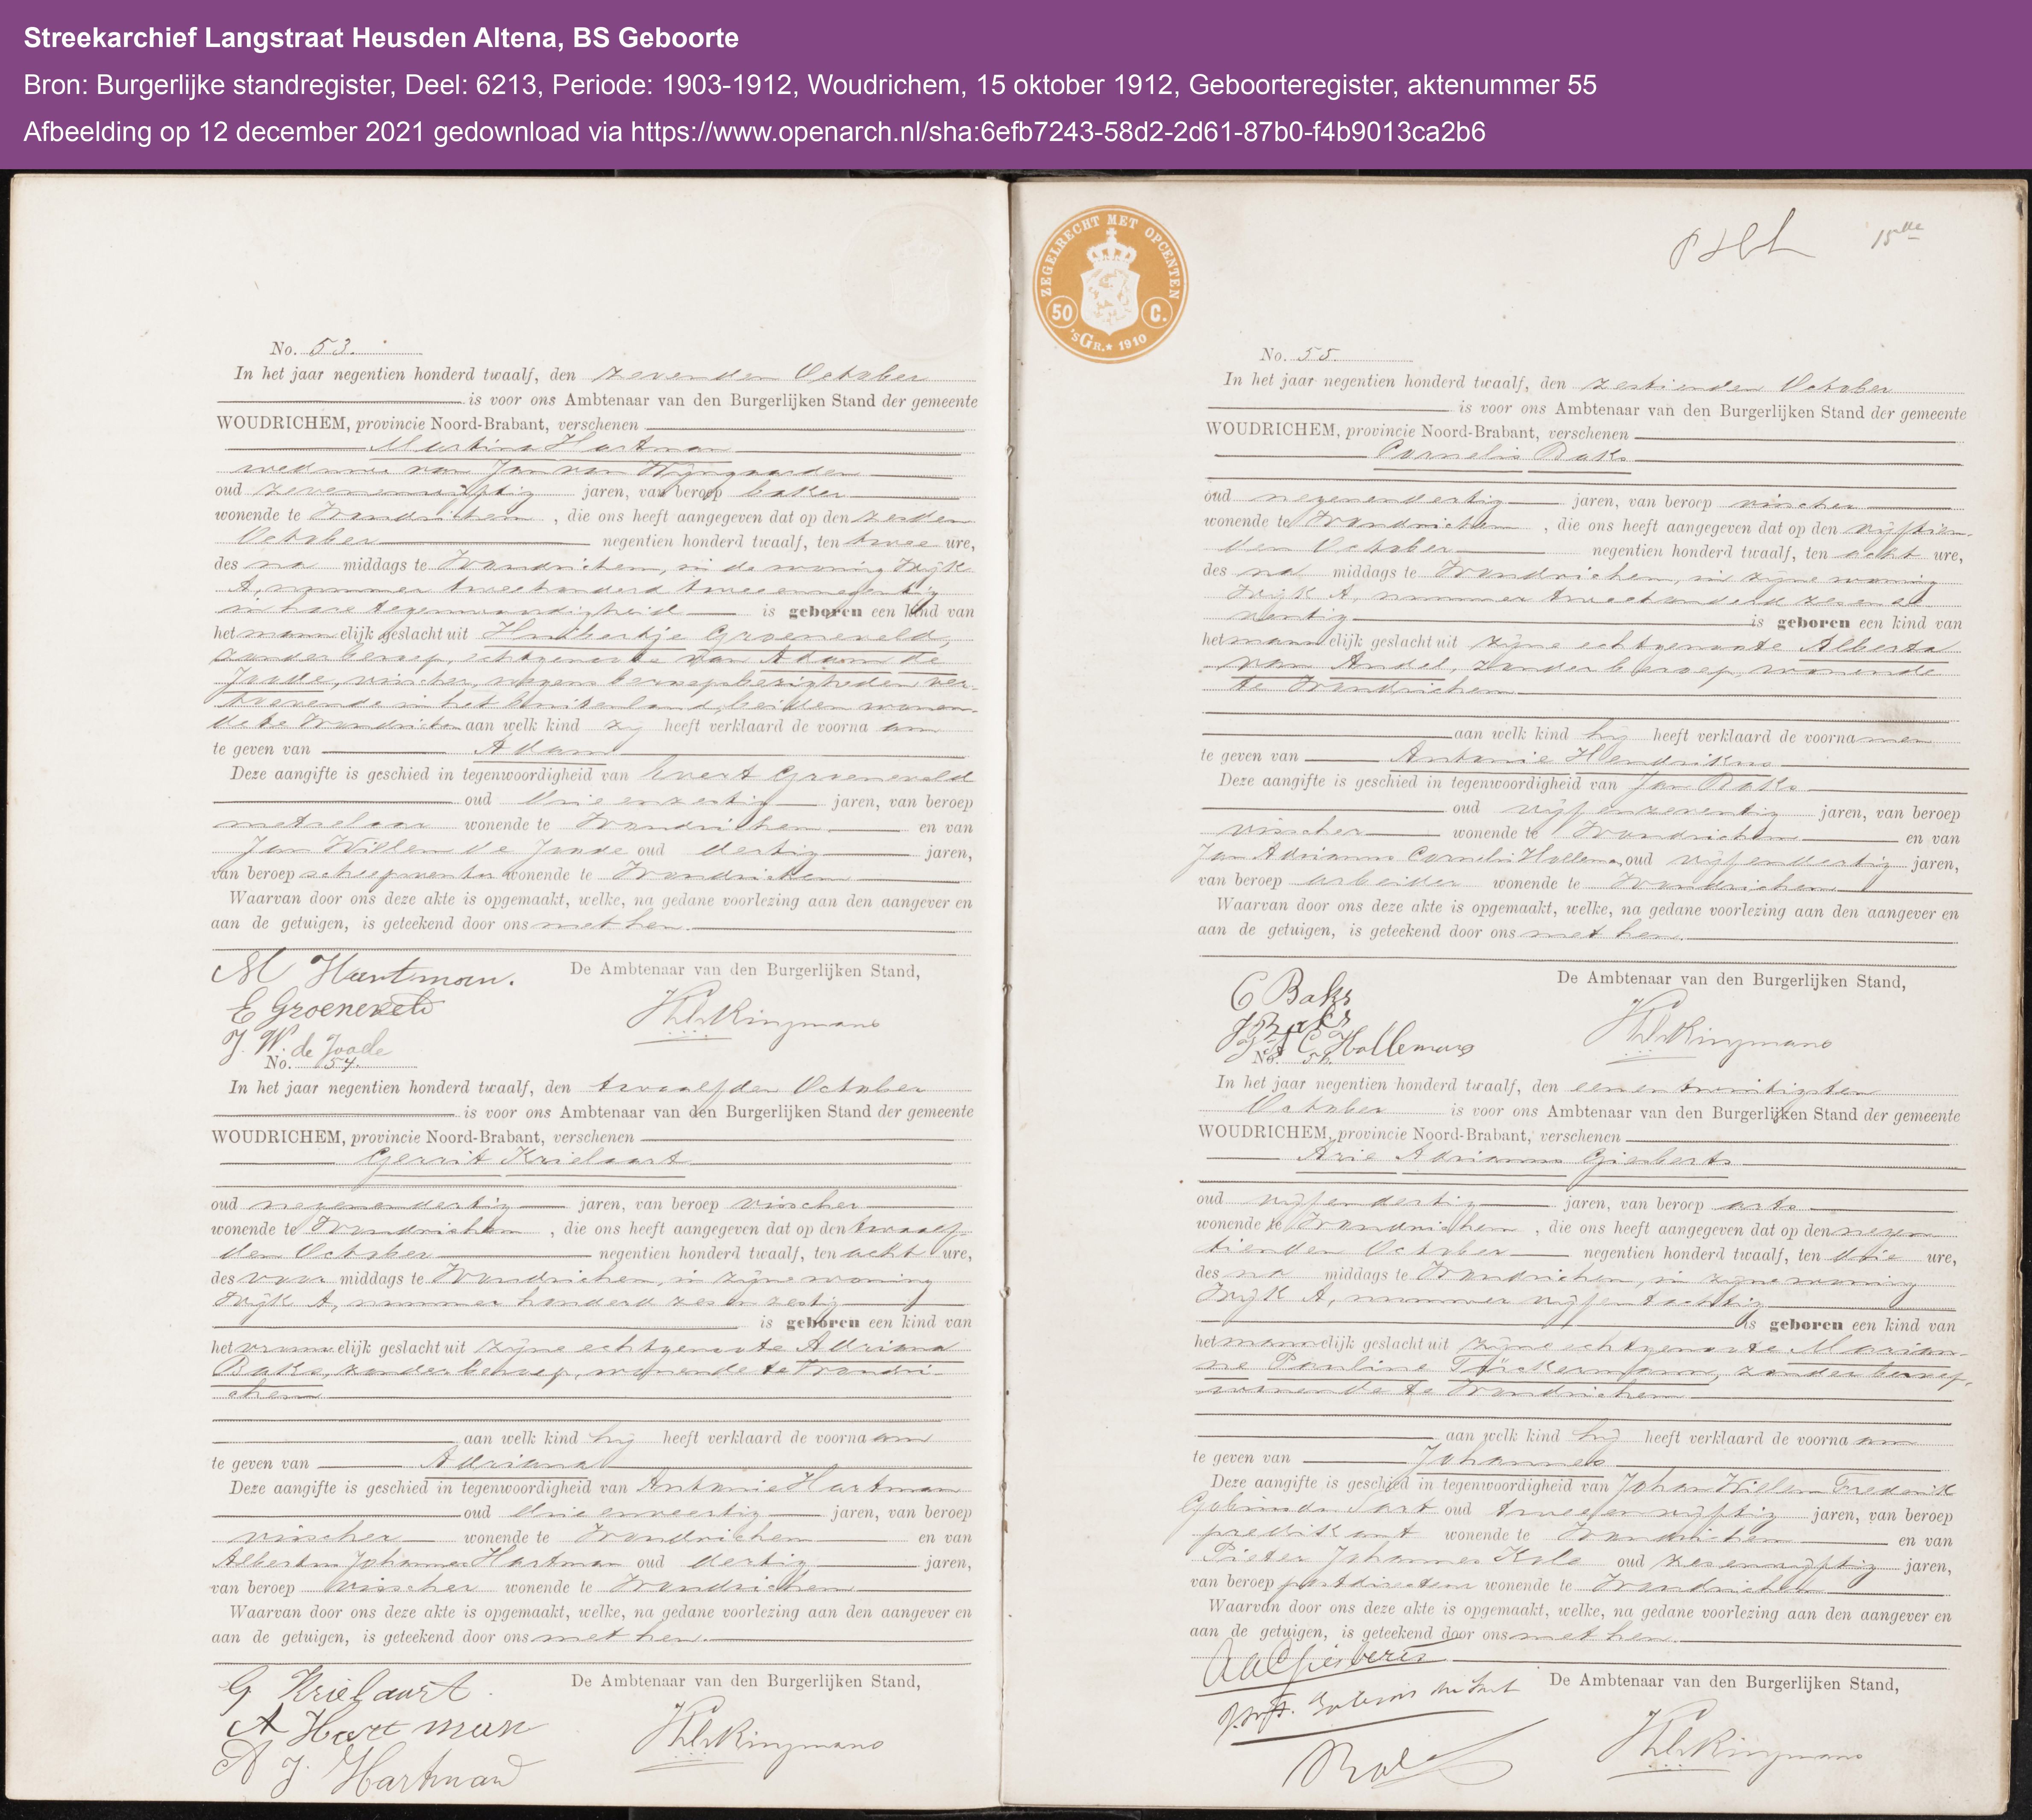 Streekarchief Langstraat Heusden Altena, BS Geboorte
Bron: Burgerlijke standregister, Deel: 6213, Periode: 1903-1912, Woudrichem, 15 oktober 1912, Geboorteregister, aktenummer 55
Afbeelding op 12 december 2021 gedownload via https://www.openarch.nl/sha:6efb7243-58d2-2d61-87b0-f4b9013ca2b6
No. 53.
In het jaar negentien honderd twaalf, den zevenden October
is voor ons Ambtenaar van den Burgerlijken Stand der gemeente
WOUDRICHEM, provincie Noord-Brabant, verschenen
Martina Hartman
weduwe van Jan van Wijngaarden
oud zevenenvijftig jaren, van beroep baker
wonende te Woudrichem, die ons heeft aangegeven dat op den zesden
October negentien honderd twaalf, ten twee ure,
des na middags te Woudrichem, in de woning Wijk
A, nummer tweehonderd tweeennegentig
in hare tegenwoordigheid is geboren een kind van
het mannelijk geslacht uit Huibertje Groeneveld,
zonder beroep, echtgenoote van Adam de
Joode, visscher, wegens beroepsbezigheden ver-
toevende in het buitenland, beiden wonen-
de te Woudrichem aan welk kind zij heeft verklaard de voornaam
te geven van Adam
Deze aangifte is geschied in tegenwoordigheid van Evert Groeneveld
oud drieenzestig jaren, van beroep
metselaar wonende te Woudrichem en van
Jan Willem de Joode oud dertig jaren,
van beroep wonende te Woudrichem
Waarvan door ons deze akte is opgemaakt, welke, na gedane voorlezing aan den aangever en
aan de getuigen, is geteekend door ons met hen.
De Ambtenaar van den Burgerlijken Stand,
M Hartman.
E Groeneveld
J. W. de Joode
No. 54.
In het jaar negentien honderd twaalf, den twaalfden October
is voor ons Ambtenaar van den Burgerlijken Stand der gemeente
WOUDRICHEM, provincie Noord-Brabant, verschenen
Gerrit Krielaart
oud negenendertig jaren, van beroep visscher
wonende te Woudrichem, die ons heeft aangegeven dat op den twaalf-
den October negentien honderd twaalf, ten acht ure,
des voor middags te Woudrichem, in zijne woning
Wijk A, nummer honderd zesenzestig
is geboren een kind van
het vrouwelijk geslacht uit zijne echtgenoote Adriana
Baks, zonder beroep, wonende te Woudri-
chem
aan welk kind hij heeft verklaard de voornaam
te geven van Adriana
Deze aangifte is geschied in tegenwoordigheid van Antonie Hartman
oud drieenveertig jaren, van beroep
visscher wonende te Woudrichem en van
Albertus Johannes Hartman oud dertig jaren,
van beroep visscher wonende te Woudrichem
Waarvan door ons deze akte is opgemaakt, welke, na gedane voorlezing aan den aangever en
aan de getuigen, is geteekend door ons met hen.
De Ambtenaar van den Burgerlijken Stand,
G Krielaart
A Hartman
A J. Hartman
ZEGELRECHT MET OPCENTEN
50 C.
'sGR. 1910
No. 55.
In het jaar negentien honderd twaalf, den zestienden October
is voor ons Ambtenaar van den Burgerlijken Stand der gemeente
WOUDRICHEM, provincie Noord-Brabant, verschenen
Cornelis Baks
oud negenendertig jaren, van beroep visscher
wonende te Woudrichem, die ons heeft aangegeven dat op den vijftien-
den October negentien honderd twaalf, ten acht ure,
des na middags te Woudrichem, in zijne woning
Wijk A, nummer tweehonderd
is geboren een kind van
het mannelijk geslacht uit zijne echtgenoote Alberta
van Andel, zonder beroep, wonende
te Woudrichem
aan welk kind hij heeft verklaard de voornamen
te geven van Antonie Hendrikus
Deze aangifte is geschied in tegenwoordigheid van Jan Baks
oud vijfenzeventig jaren, van beroep
visscher wonende te Woudrichem en van
Jan Adrianus Cornelis Hollemans, oud vijfendertig jaren,
van beroep arbeider wonende te Woudrichem
Waarvan door ons deze akte is opgemaakt, welke, na gedane voorlezing aan den aangever en
aan de getuigen, is geteekend door ons met hen.
De Ambtenaar van den Burgerlijken Stand,
C Baks
J Baks
J A C Hollemans
No. 56.
In het jaar negentien honderd twaalf, den eenentwintigsten
October is voor ons Ambtenaar van den Burgerlijken Stand der gemeente
WOUDRICHEM, provincie Noord-Brabant, verschenen
Arie Adrianus Giesberts
oud vijfendertig jaren, van beroep arts
wonende te Woudrichem, die ons heeft aangegeven dat op den negen
tienden October negentien honderd twaalf, ten drie ure,
des na middags te Woudrichem, in zijne woning
Wijk A, nummer vijfentachtig
is geboren een kind van
het mannelijk geslacht uit zijne echtgenoote Marian-
ne Pauline zonder beroep,
wonende te Woudrichem
aan welk kind hij heeft verklaard de voornaam
te geven van Johannes
Deze aangifte is geschied in tegenwoordigheid van Johan Willem Frederik
Gobius du Sart oud tweeenvijftig jaren, van beroep
predikant wonende te Woudrichem en van
Pieter Johannes Kole oud zesenvijftig jaren,
van beroep postdirecteur wonende te Woudrichem
Waarvan door ons deze akte is opgemaakt, welke, na gedane voorlezing aan den aangever en
aan de getuigen, is geteekend door ons met hen.
De Ambtenaar van den Burgerlijken Stand,
A A Giesberts
J.W.F. Gobius du Sart